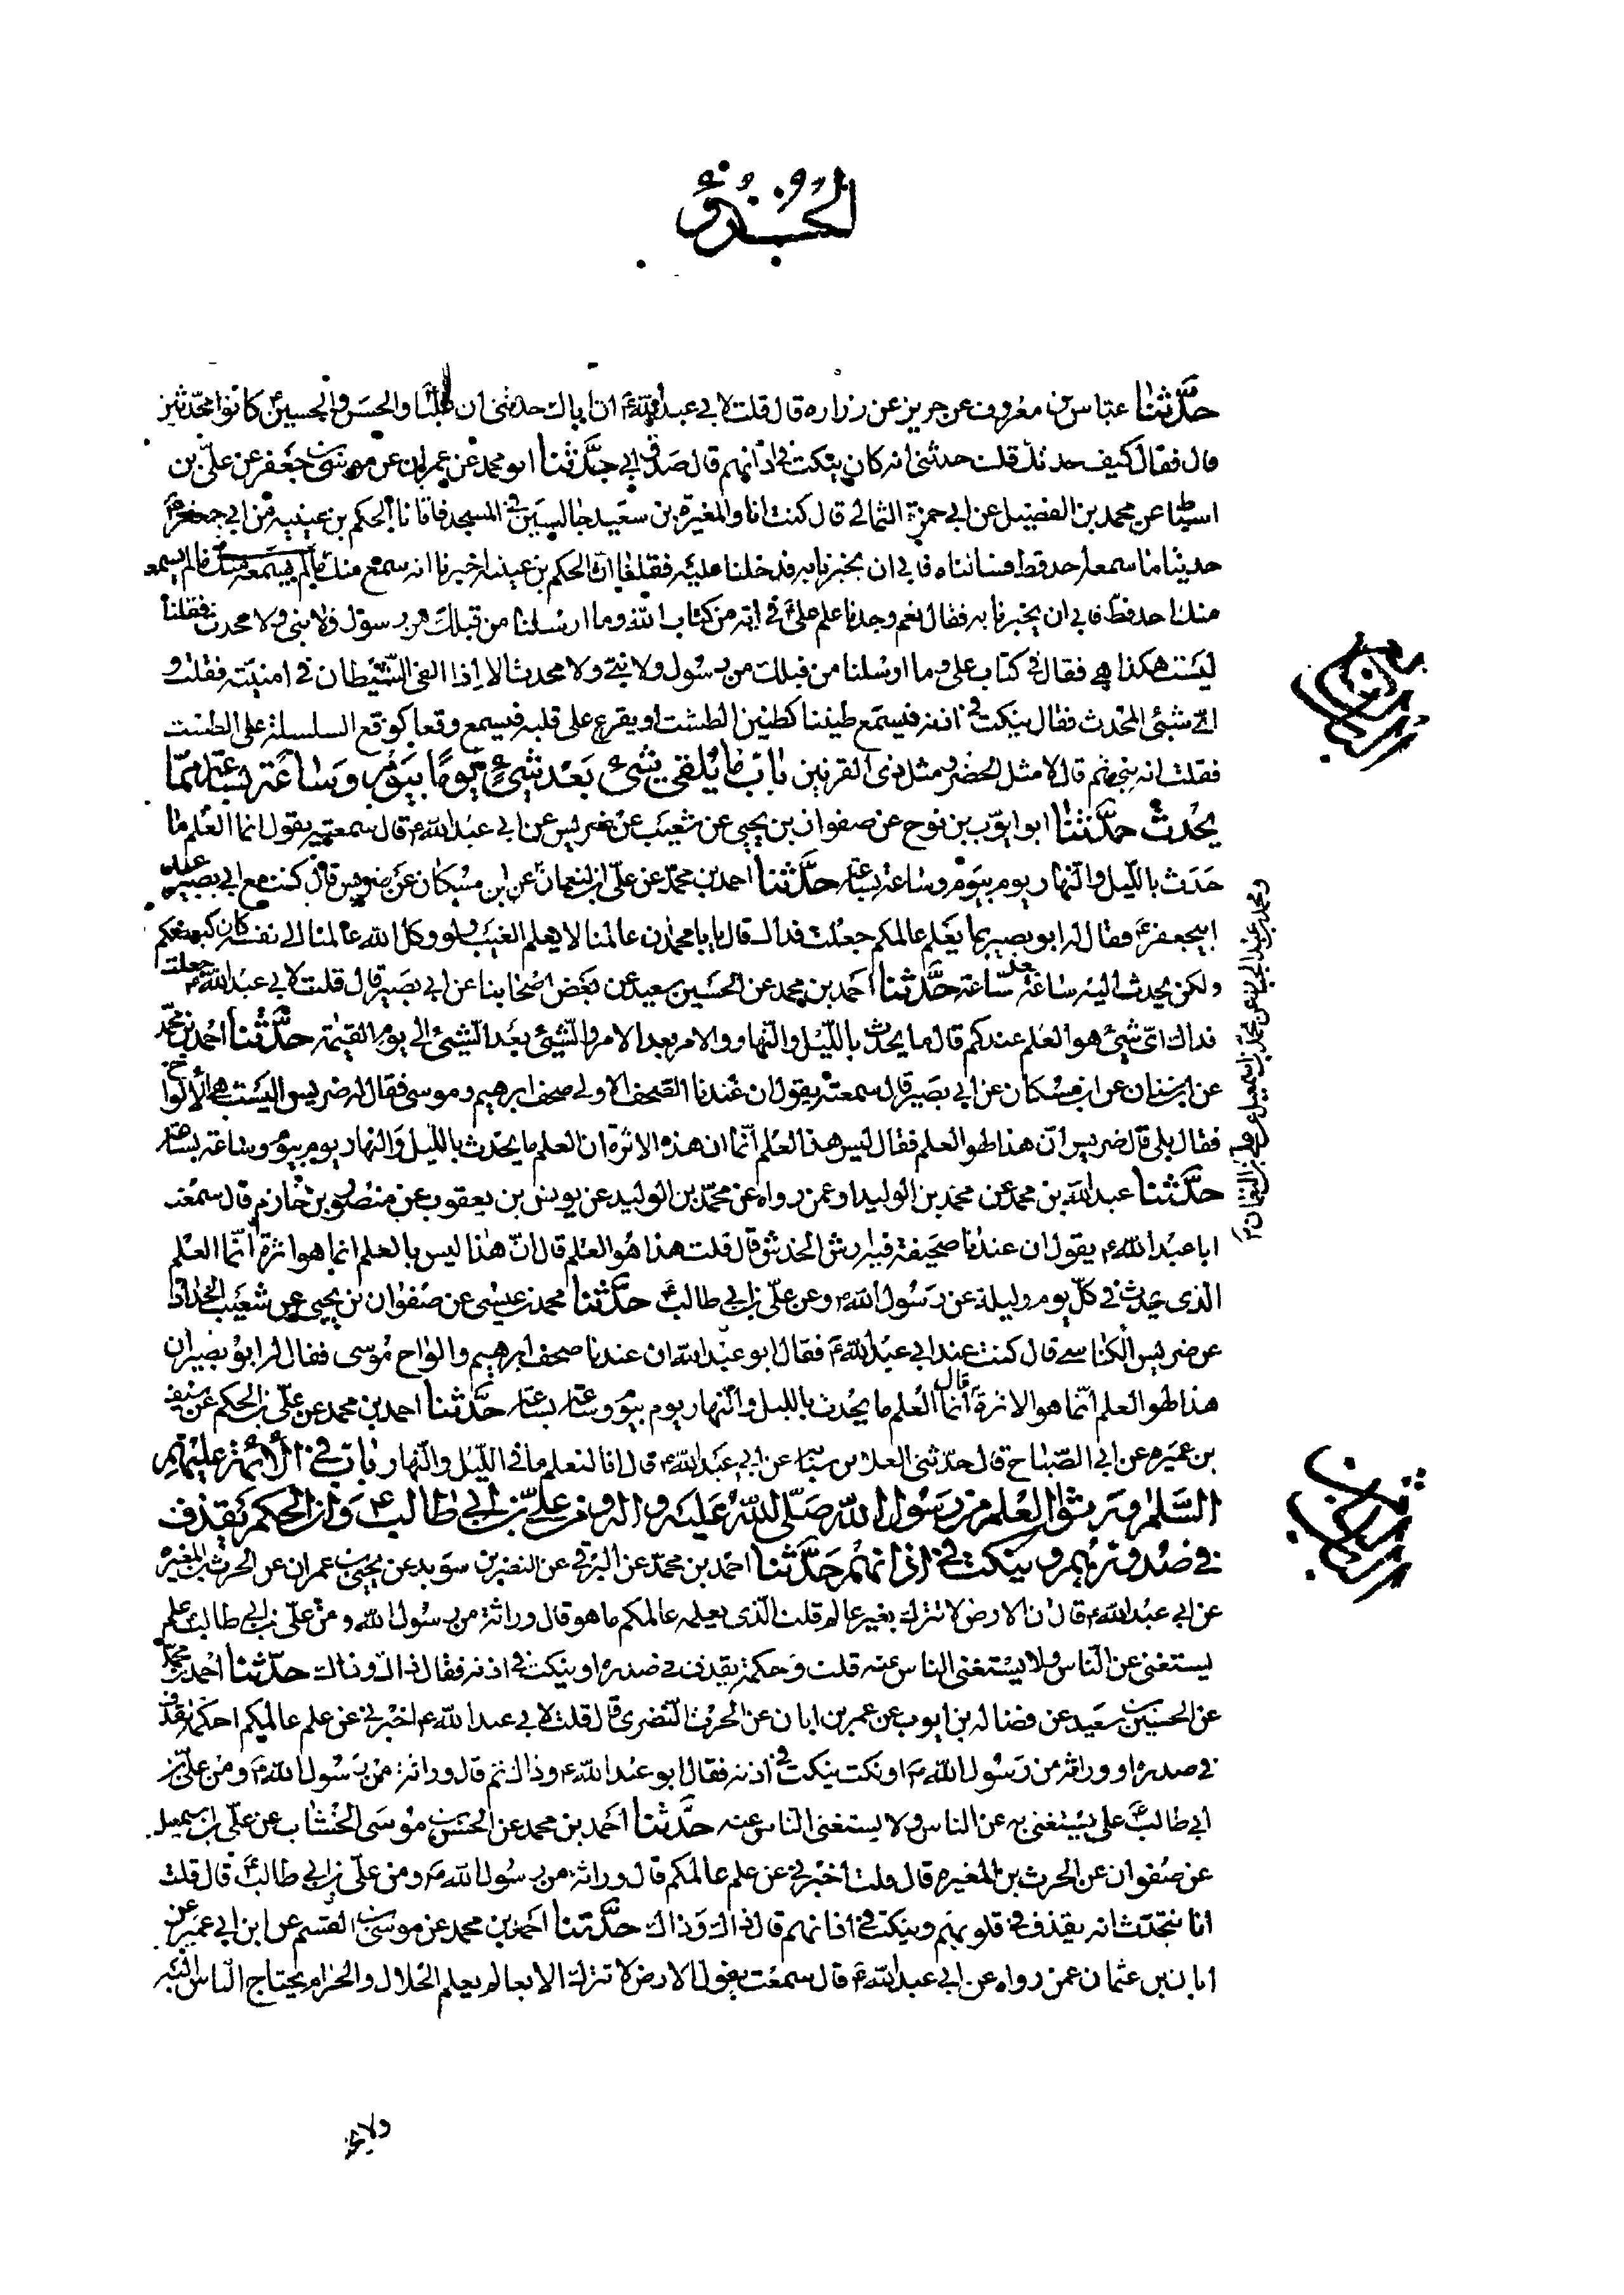 الجزؤ
حدّثنا عباس بن معروف عن حريز عن زراره قال قلت لابي عبد الله ع ان اباك حدثنى ان عليّا والحسن والحسين ع كانوا محدّثين
قال فقال كيف حدثك قلت حدثنى انه كان ينكت فى اذانهم قال صدق ابي حدّثنا ابو محمد عن عمران عن موسى بن جعفر عن على بن
اسباط عن محمد بن الفضيل عن ابي حمزة الثمالى قال كنت انا والمغيرة بن سعيد جالسين فى المسجد فاتانا الحكم بن عيينه فقال سمعت من ابي جعفر ع
حديثا ما سمعه احد قط فسالناه فابى ان يخبرنا به فدخلنا عليه فقلنا ان الحكم بن عيينه اخبرنا انه سمع منك ما لم يسمعه
منك احد قط فابى ان يخبرنا به فقال نعم وجدنا علم على ع فى ايه من كتاب الله وما ارسلنا من قبلك من رسول ولا نبى ولا محدث فقلنا
ليست هكذا هى فقال فى كتاب على وما ارسلنا من قبلك من رسول ولا نبى ولا محدث الا اذا تمنى القى الشيطان فى امنيته فقلت و
اىّ شىء المحدث فقال ينكت فى اذنه فيسمع طنينا كطنين الطشت او يقرع على قلبه فيسمع وقعا كوقع السلسلة على الطشت
فقلت انه نبى ثم قال لا مثل الخضر ومثل ذى القرنين باب ما يلقى شىء بعد شىء يوما بيوم وساعة بساعة مما
يحدث حدّثنا ابو ايوب بن نوح عن صفوان بن يحيى عن شعيب عن ضريس عن ابي عبد الله ع قال سمعته يقول انما العلم ما
حدث بالليل والنهار يوم بيوم وساعة بساعة حدّثنا احمد بن محمد عن على بن النعمان عن ابن مسكان عن ضريس قال كنت مع ابي بصير عند
ابي جعفر ع فقال له ابو بصير بما يعلم عالمكم جعلت فداك قال يا با محمد ان عالمنا لا يعلم الغيب ولو وكل الله عالمنا الى نفسه كان كبعضكم
ولكن يحدث اليه ساعة بعد ساعة حدّثنا احمد بن محمد عن الحسين بن سعيد عن بعض اصحابنا عن ابي بصير قال قلت لابي عبد الله ع جعلت
فداك اى شىء هو العلم عندكم قال ما يحدث بالليل والنهار والامر بعد الامر والشىء بعد الشىء الى يوم القيمة حدّثنا احمد بن محمد
عن ابن سنان عن ابن مسكان عن ابي بصير قال سمعته يقول ان عندنا الصحف الاولى صحف ابرهيم وموسى فقال له ضريس اليست هى الالواح
فقال بلى قال ضريس ان هذا لهو العلم فقال ليس هذا العلم انما ان هذه الاثرة ان العلم ما يحدث بالليل والنهار يوم بيوم وساعة بساعة
حدّثنا عبد الله بن محمد عن محمد بن الوليد او عمن رواه عن محمد بن الوليد عن يونس بن يعقوب عن منصور بن حازم قال سمعت
ابا عبد الله ع يقول ان عندنا صحيفة فيها ارش الخدش قال قلت هذا هو العلم قال ان هذا ليس بالعلم انما هو اثرة انما العلم
الذى يحدث فى كل يوم وليلة عن رسول الله ص وعن على بن ابي طالب ع حدّثنا محمد بن عيسى عن صفوان بن يحيى عن شعيب الحداد
عن ضريس الكناسى قال كنت عند ابي عبد الله ع فقال ابو عبد الله ان عندنا صحف ابرهيم والواح موسى فقال له ابو بصير ان
هذا لهو العلم قال انما هو الاثرة انما العلم ما يحدث بالليل والنهار يوم بيوم وساعة بساعة حدّثنا احمد بن محمد عن على بن الحكم عن سيف
بن عميره عن ابي الصباح قال حدثنى العلا بن سيابه عن ابي عبد الله ع قال انا لنعلم ما فى الليل والنهار باب فى الائمة عليهم
السلام ورثوا العلم من رسول الله صلى الله عليه واله ومن على بن ابي طالب ع وان الحكم يقذف
فى صدورهم وينكت فى اذانهم حدّثنا احمد بن محمد عن البرقى عن النضر بن سويد عن يحيى بن عمران عن الحرث بن المغيره
عن ابي عبد الله ع قال ان الارض لا تترك بغير عالم قلت الذى يعلمه عالمكم ما هو قال وراثة من رسول الله ومن على بن ابي طالب علم
يستغنى عن الناس ولا يستغنى الناس عنه قلت وحكمة يقذف فى صدره او ينكت فى اذنه فقال ذاك وذاك حدّثنا احمد بن محمد
عن الحسين بن سعيد عن فضاله بن ايوب عن عمر بن ابان عن الحرث النضرى قال قلت لابي عبد الله ع اخبرنى عن علم عالمكم احكمة يقذف
فى صدره او وراثة من رسول الله ص او نكت ينكت فى اذنه فقال ابو عبد الله ع وذاك ثم قال وراثة من رسول الله ص ومن على بن
ابي طالب ع علم يستغنى به عن الناس ولا يستغنى الناس عنه حدّثنا احمد بن محمد عن الحسن بن موسى الخشاب عن على بن اسمعيل
عن صفوان عن الحرث بن المغيره قال قلت اخبرنى عن علم عالمكم قال وراثة من رسول الله ص ومن على بن ابي طالب ع قال قلت
انا نتحدث انه يقذف فى قلوبهم وينكت فى اذانهم قال ذاك وذاك حدّثنا احمد بن محمد عن موسى بن القسم عن ابن ابي عمير عن
ابان بن عثمان عمن رواه عن ابي عبد الله ع قال سمعت يقول الارض لا تترك الا بعالم يعلم الحلال والحرام يحتاج الناس اليه
ومحمد بن عبد الجبار عن محمد بن اسمعيل عن على بن النعمان
ولا يحتاج